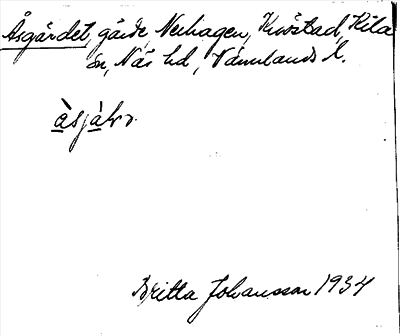 Åsgärdet, gärde, Nerhagen, Knöstad, Kila
sn, Näs hd, Värmlands l.
Britta Johansson 1934